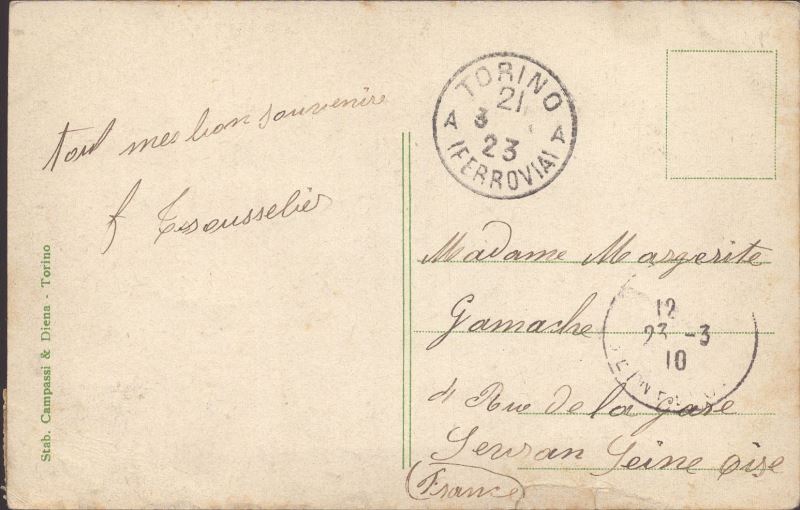 tout mes bon souvenire
f Trousselier
Stab. Campassi & Diena - Torino
TORINO
21
3
23
A A
(FERROVIA)
Madame Margerite
Gamache
12
23 - 3
10
4 Rue de la Gare
Sevran Seine Oise
(France)